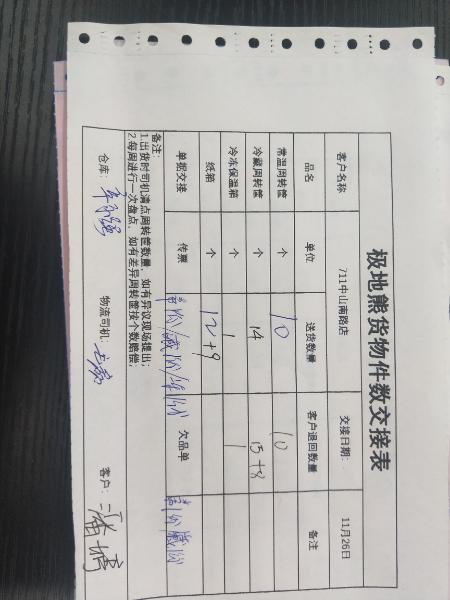 极地熊货物件数交接表
客户名称 711中山南路店 交接日期: 11月26日
品名 单位 送货数量 客户退回数量 备注
常温周转筐 个 10 10
冷藏周转筐 个 14 15+8
冷冻保温箱 个 1 1
纸箱 个 12+9
单据交接 传票 欠品单
备注:
1.出货时司机清点周转筐数量，如有异议现场提出;
2.每周进行一次盘点，如有差异周转筐按个数赔偿;
仓库: 物流司机: 客户: